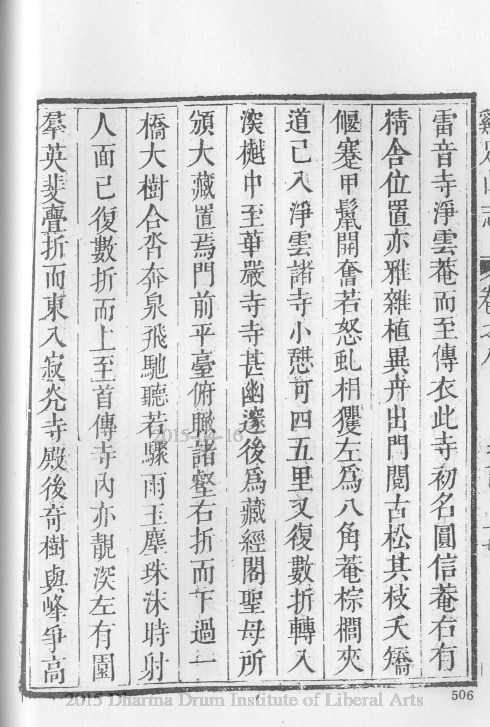 雷音寺淨雲菴而至傳衣此寺初名圓信菴右有
精舍位置亦雅雜植異卉出門閱古松其枝夭矯
偃蹇甲鬣開奮若怒虬相玃左爲八角菴棕櫚夾
道已入淨雲諸寺小憇可四五里又復數折轉入
深樾中至華嚴寺寺甚幽邃後爲藏經閣聖母所
頒大藏置焉門前平臺俯瞰諸壑右折而下過一
橋大樹合沓奔泉飛馳聽若驟雨玉塵珠沫時射
人面已復數折而上至首傳寺內亦靚深左有園
羣英斐亹折而東入寂光寺殿後奇樹與峰爭高
506
2015-04-16
2015 Dharma Drum Institute of Liberal Arts